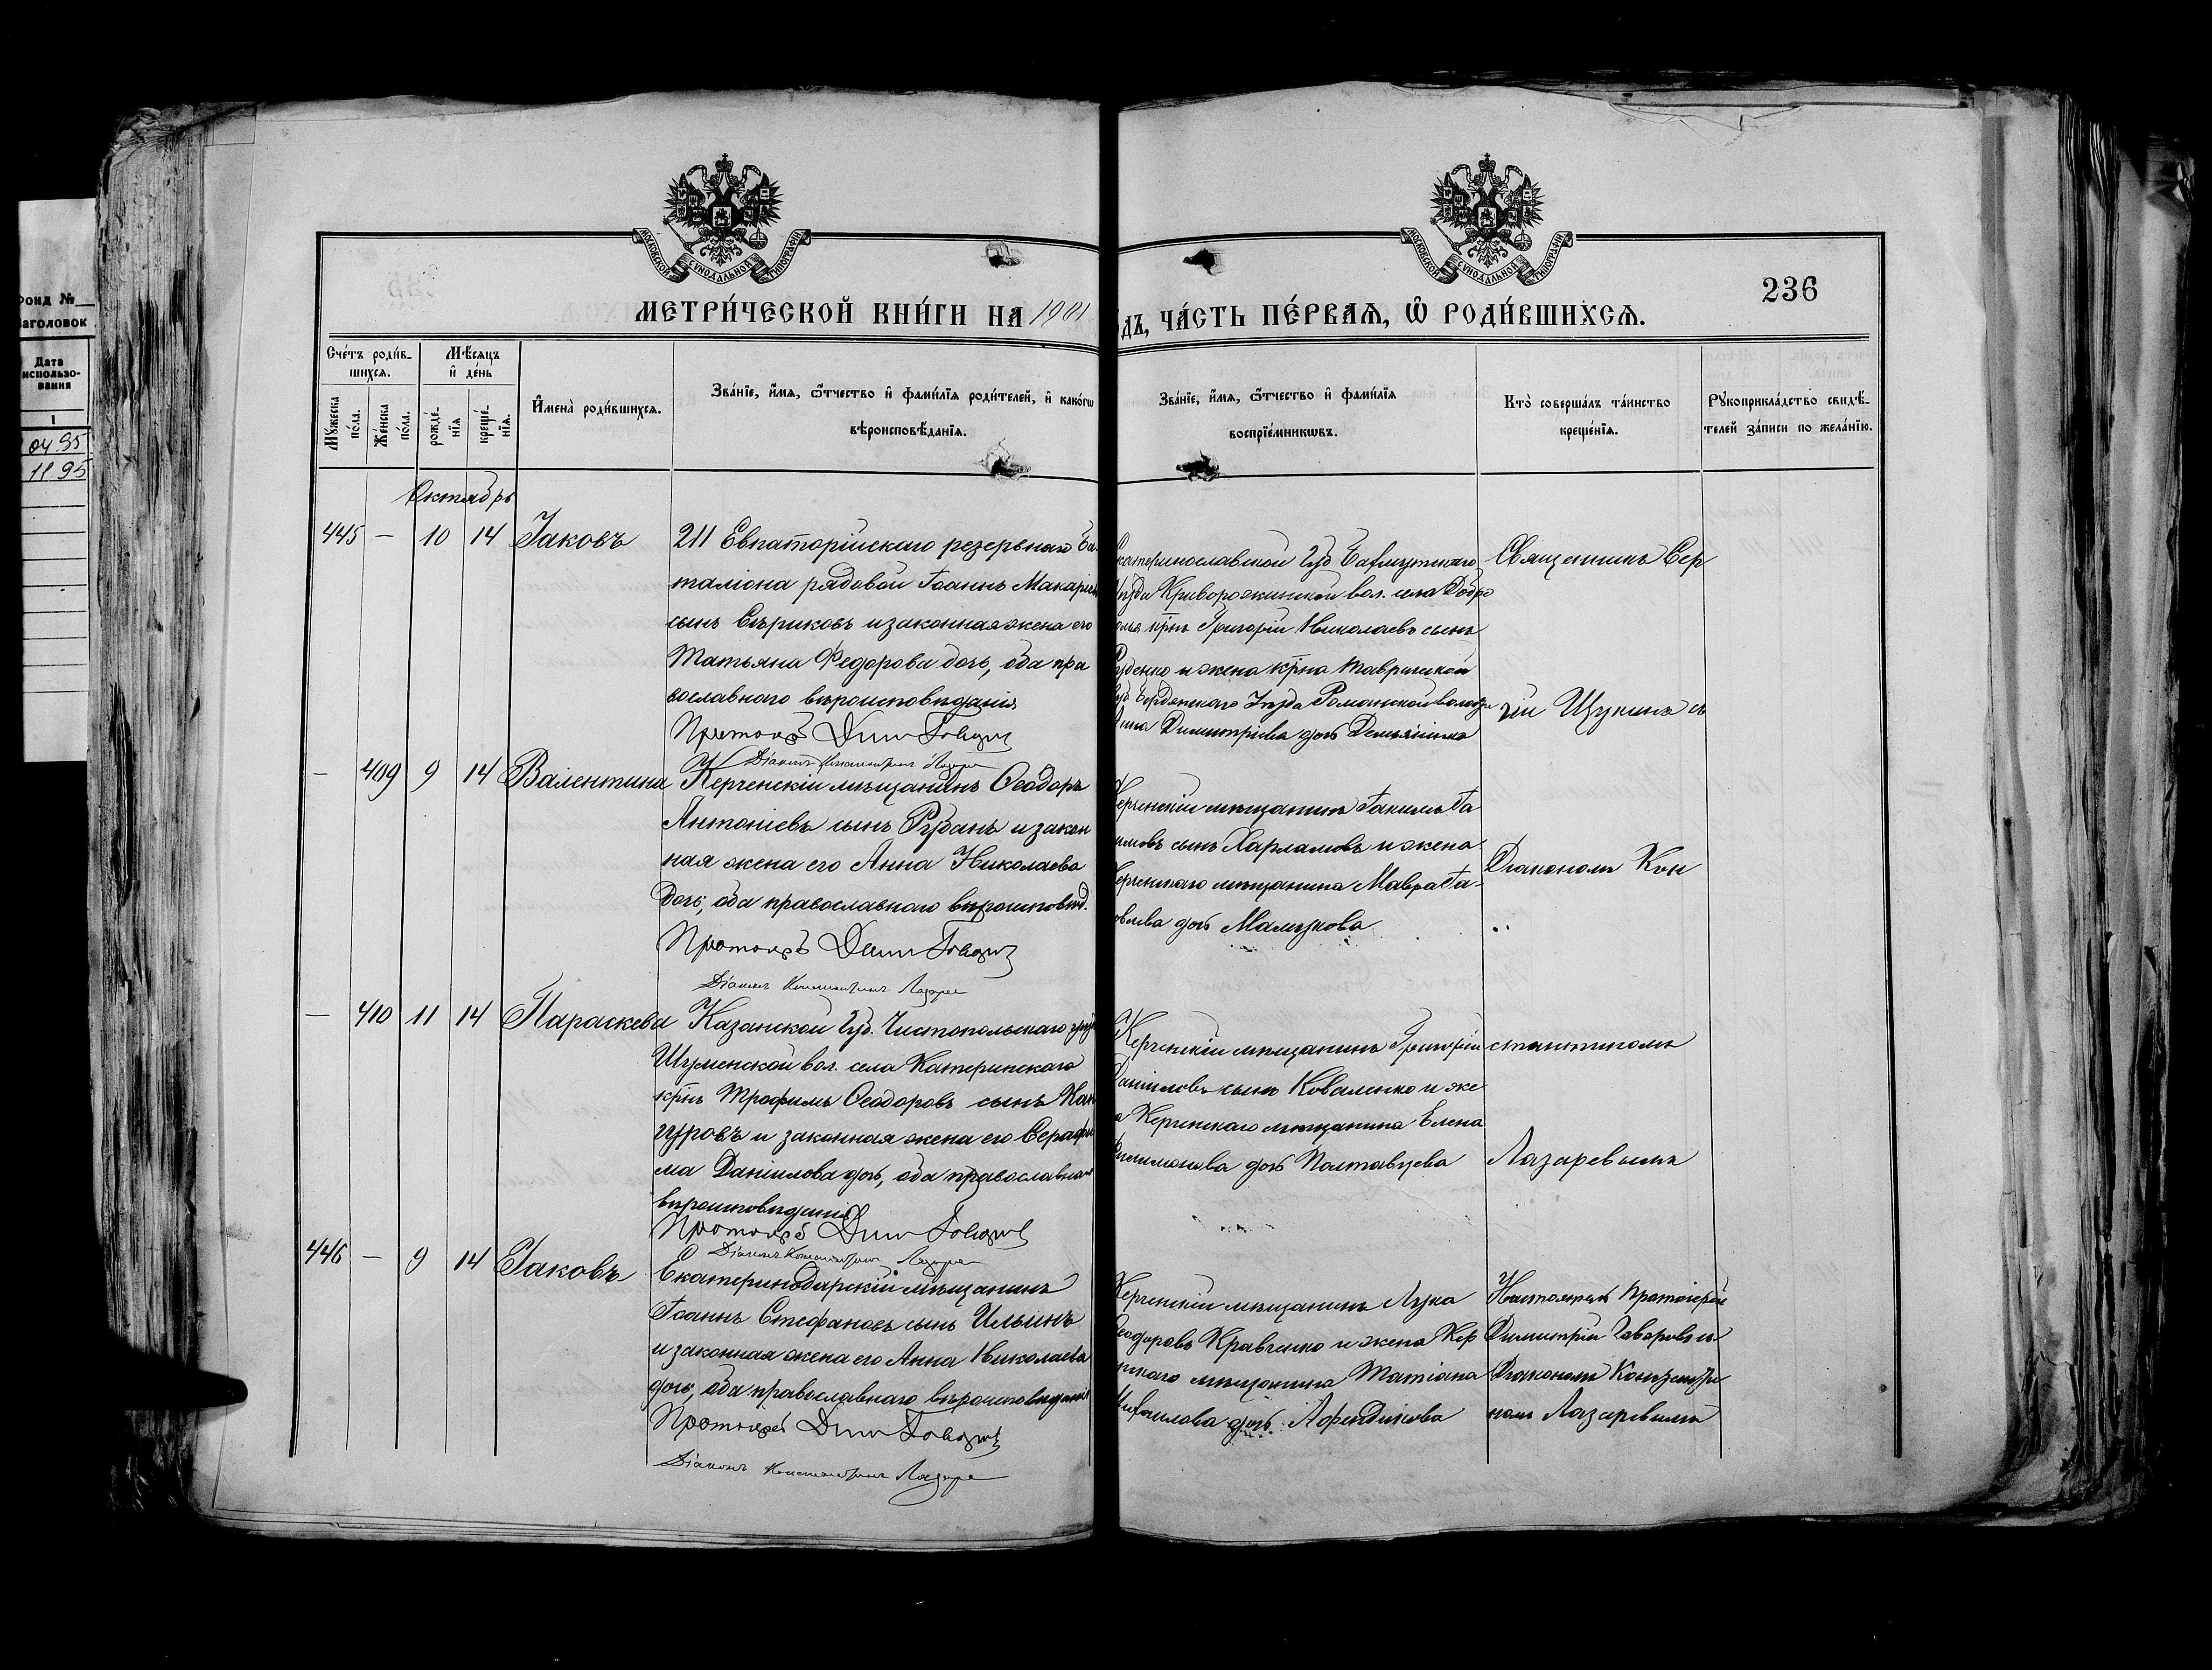 Фонд №
аголовок
Дата
использо-
вания
1
04.95
11 95
МОСКОВСКОЙ СѴНОДАЛЬНОЙ ТИПОГРАФІИ
МОСКОВСКОЙ СѴНОДАЛЬНОЙ ТИПОГРАФІИ
236
МЕТРИ́ЧЕСКОЙ КНИ́ГИ НА 1901
ДЪ, ЧА́СТЬ ПЕ́РВАѦ, Ѡ РОДИ́ВШИХСѦ.
Сче́тъ роди́в-
шихсѧ.
Мꙋ́жеска
по́ла.
Же́нска
по́ла.
Мѣ́сѧцъ
и҆ де́нь
рожде́-
нїѧ
креще́-
нїѧ.
И҆мена̀ роди́вшихсѧ.
Зва́нїе, и҆́мѧ, ѻ҆́тчество и҆ фами́лїѧ роди́телей, и҆ како́гѡ
вѣроисповѣ́данїѧ.
Зва́нїе, и҆́мѧ, ѻ҆́тчество и҆ фами́лїѧ
воспрїе́мникѡвъ.
Кто̀ соверша́лъ та́инство
креще́нїѧ.
Рꙋкоприкла́дство свидѣ́-
телей за́писи по жела́нїю.
Октябрь
445 — 10 14 Іаковъ
211 Евпаторійскаго резервнаго ба-
таліона рядовой Іоаннъ Макаріевъ
сынъ Сѣриковъ и законная жена его
Татьяна Федорова дочь, оба пра
вославнаго вѣроисповѣданія
Протоіер
Діаконъ Константинъ Лазаре
катеринославской губ Бахмутскаго
уѣзда Криворожинской вол. села Добро
крнъ Григорій Николаевъ сынъ
Руденко и жена крна Таврической
губ Бердянскаго уѣзда Романской волости
Анна Димитріева дочь
Священникъ Сер
гій Щукинъ съ
— 409 9 14 Валентина
Керченскій мѣщанинъ Ѳеодоръ
Антоніевъ сынъ Рубанъ и закон
ная жена его Анна Николаева
дочь, оба православнаго вѣроисповѣд.
Протоіер
Діаконъ Константинъ Лазаре
Керченскій мѣщанинъ Іакимъ Іа
имовъ сынъ Харламовъ и жена
Керченскаго мѣщанина Мавра Іа-
ковлева дочь Малыкова
Діакономъ Кон
— 410 11 14 Параскева
Казанской губ. Чистопольскаго уѣз
Шуменской вол. села Катеринскаго
крнъ Трофимъ Ѳеодоровъ сынъ Кан
гуровъ и законная жена его Серафи
ма Даніилова дочь, оба православнаго
вѣроисповѣданія
Протоіер
Діаконъ Константинъ Лазаре
Керченскій мѣщанинъ Григорій
Даніиловъ сынъ Коваленко и же
а Керченскаго мѣщанина Елена
Филимонова дочь Полтавцева
стантиномъ
Лазаревымъ
446 — 9 14 Іаковъ
Екатеринодарскій мѣщанинъ
Іоаннъ Стефановъ сынъ Ильинъ
и законная жена его Анна Николаева
дочь, оба православнаго вѣроисповѣданія
Протоіерей
Діаконъ Константинъ Лазаре
Керченскій мѣщанинъ Лука
Ѳеодоровъ Кравченко и жена Кер
нскаго мѣщанина Татіана
Михаилова дочь Афендикова
Настоятель Протоіерей
Димитрій Говоровъ съ
Діакономъ Константи
номъ Лазаревымъ